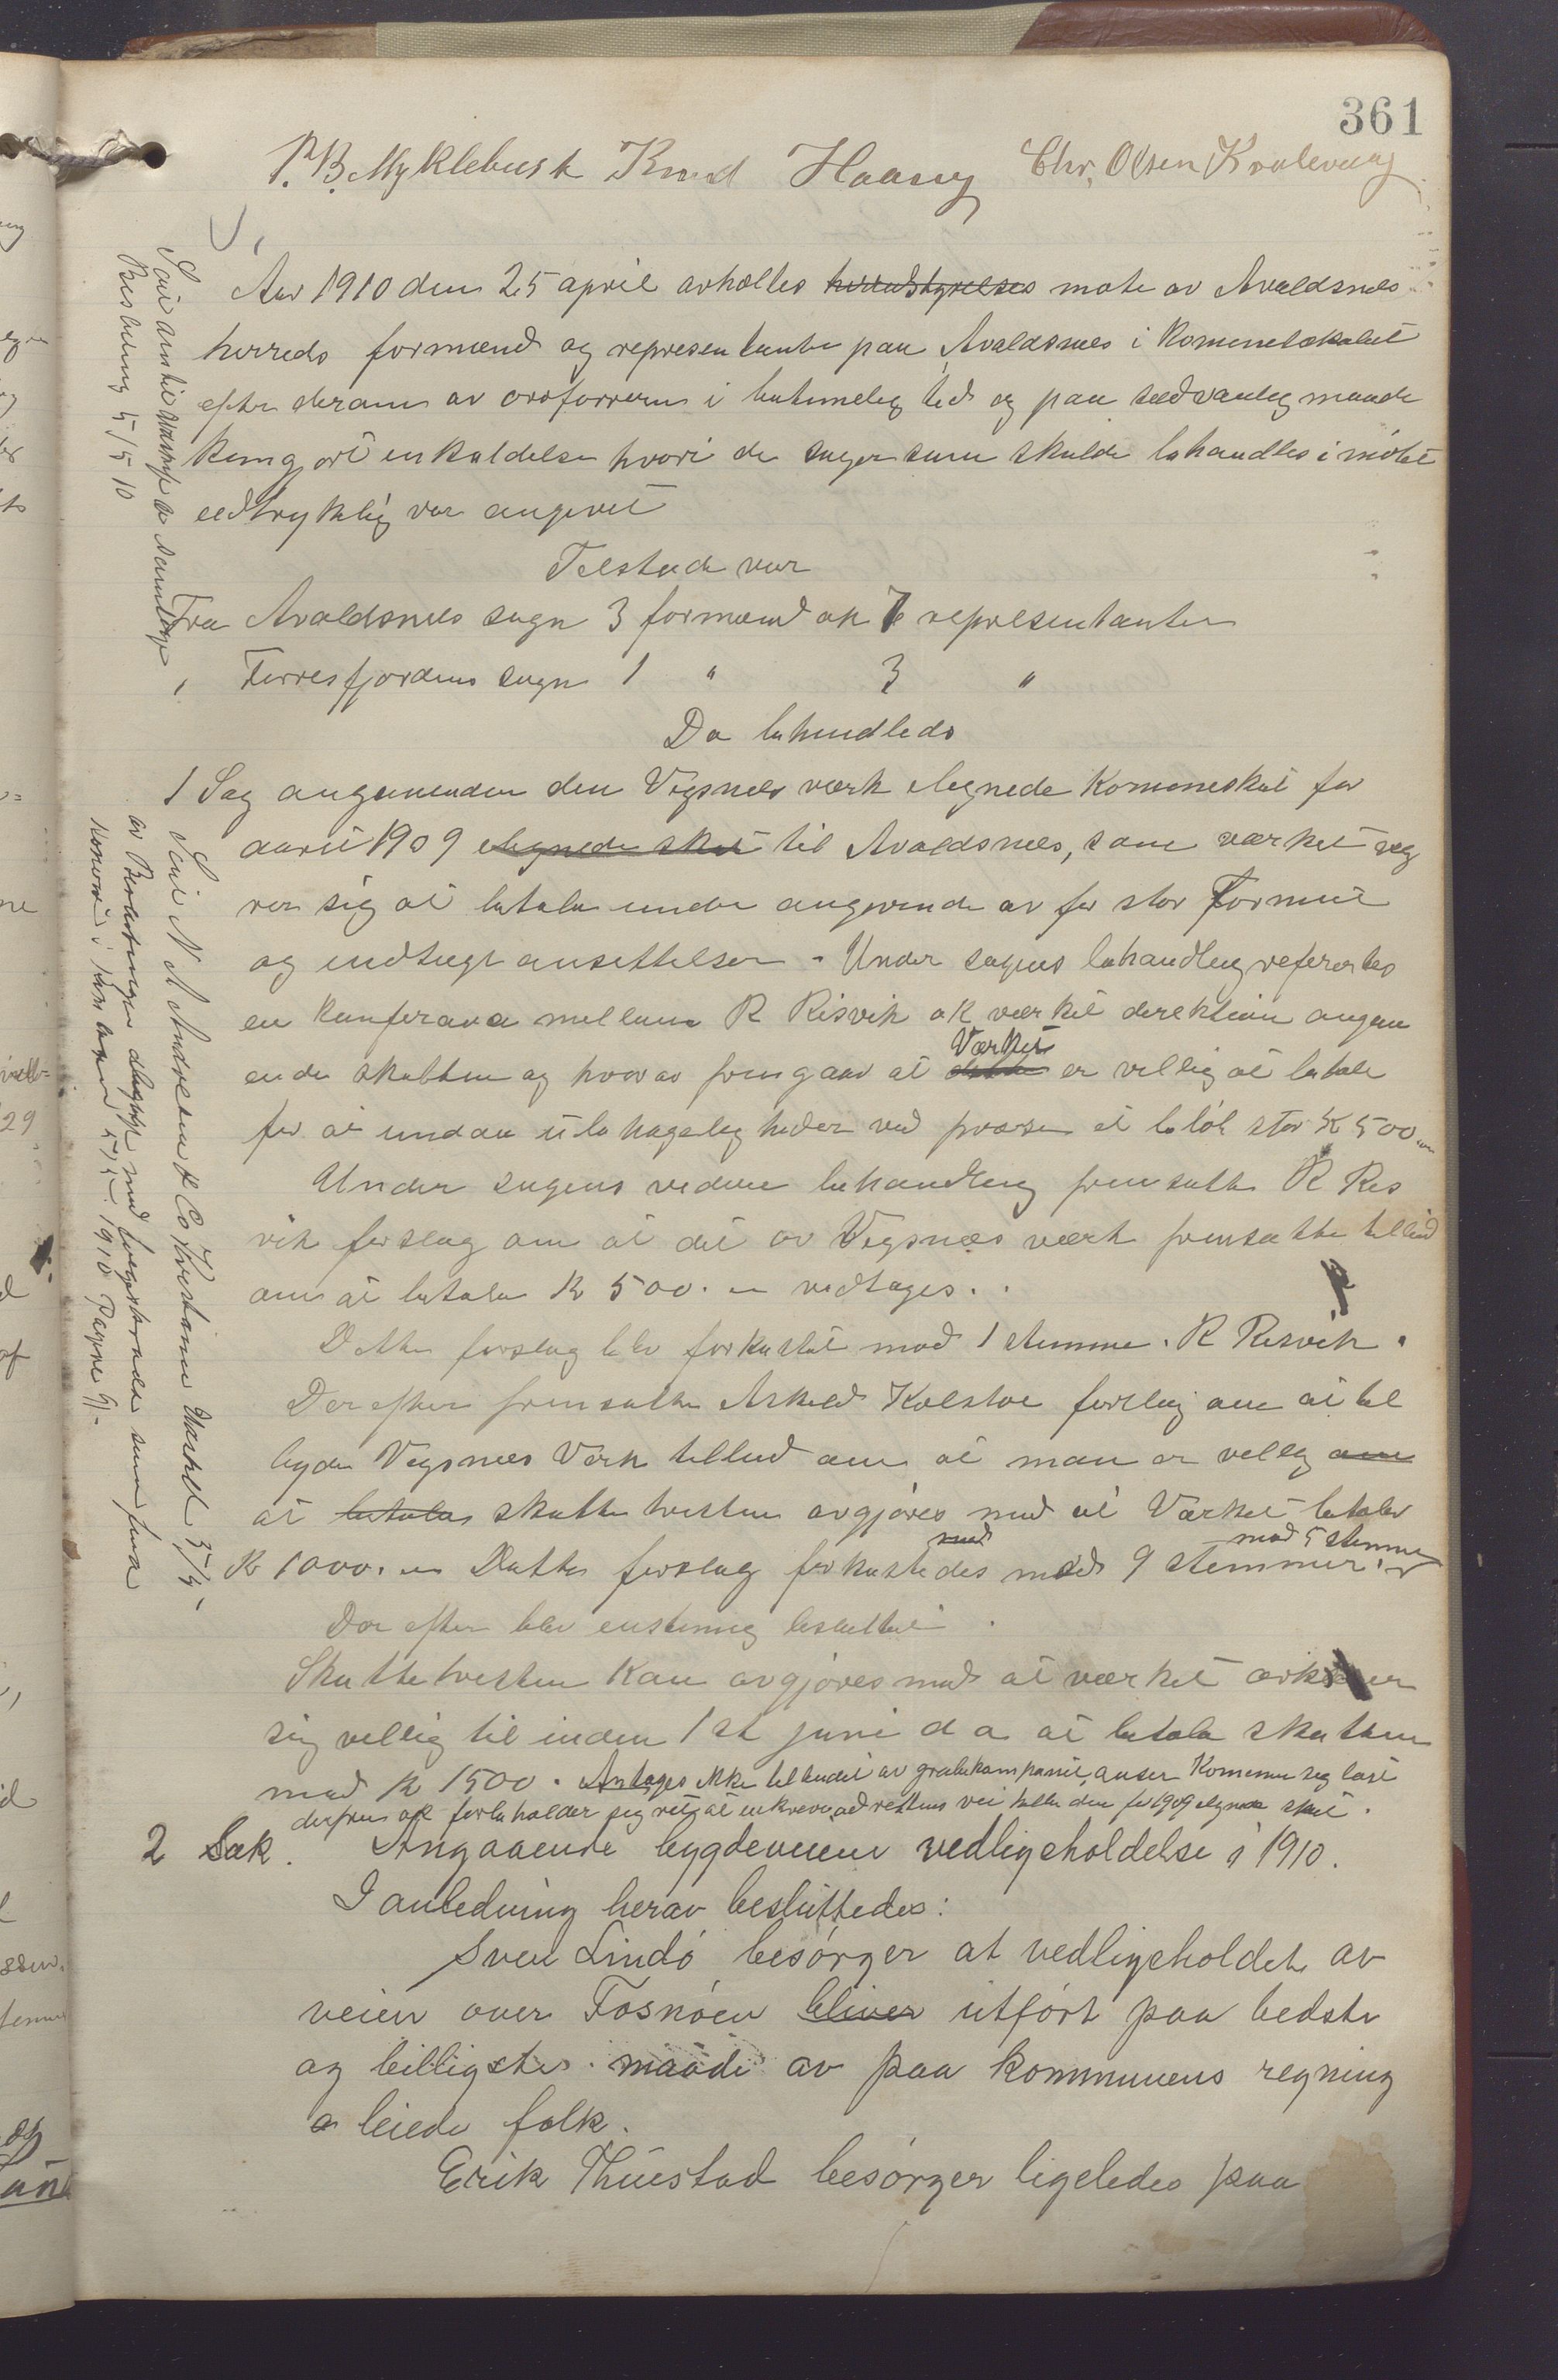 361
P. B. Myklebust Knud Haavig Chr. Olsen Kvalevaag
Aar 1910 den 25 april avholtes herredstyrelses møte av Avaldsnes
herreds formænd og representanter paa Avaldsnes i Komunelokalet
efter deram av ordføreren i betimelig tid og paa sedvanlig maade
kungjort inkaldelse hvori de sager som skulde behandles i møtet
udtryklig var angivet
Tilstede var
Fra Avaldsnes sogn 3 formænd ok 7 representanter
" Førresfjordens sogn 1 " 3 "
Da behandleds
1 Sag angaaenden den Vigsnes værk ilignede Komuneskat for
aaret 1909 ilignede skat til Avaldsnes, som værket veg
rer sig at betale under angivende av for stor Formue
og indtægt ansettelser. Under sagens behandling refereres
en konferance mellem R Risvik ok værket direktion angaa
ende skatten og hvorav fremgaar at dette Værket er villig at betale
for at undaa ubehageligheder ved proces et beløb stor K 500.
Under sagens videre behandling fremsatte R Ris
vik forslag om at det av Vigsnæs værk fremsatte tilbud
om at betale K 500. vedtages.
Dette forslag blev forkastet mod 1 stemme. R Risvik.
Derefter fremsatte Askild Kolstøe forslag om at til
byde Vigsnes Værk tilbud om at man er villig om
at betale skatte tvisten avgjøres med at Værket betaler
Kr 1000. Dette forslag forkastedes med 9 stemmer mod 5 stemmer
Der efter blev enstemmig besluttet
Skattetvisten kan avgjøres med at værket erklærer
sig villig til inden 1st juni d a at betale skatten
med K 1500. Antages ikke tilbudet av grubekompaniet, anser Komunen seg løst
derfra ok forbeholder sig ret at inkreve ad rettens vei hele den for 1909 ilignede skat.
2 Sak. Angaaende bygdeveiene vedligeholdelse i 1910.
I anledning herav besluttedes:
Sven Lindö besörger at vedligeholdet av
veien over Fosnöen bliver utfört paa bedste
og billigste maade av paa kommunens regning
leiede folk.
Erik Thuestad besörger ligeledes paa